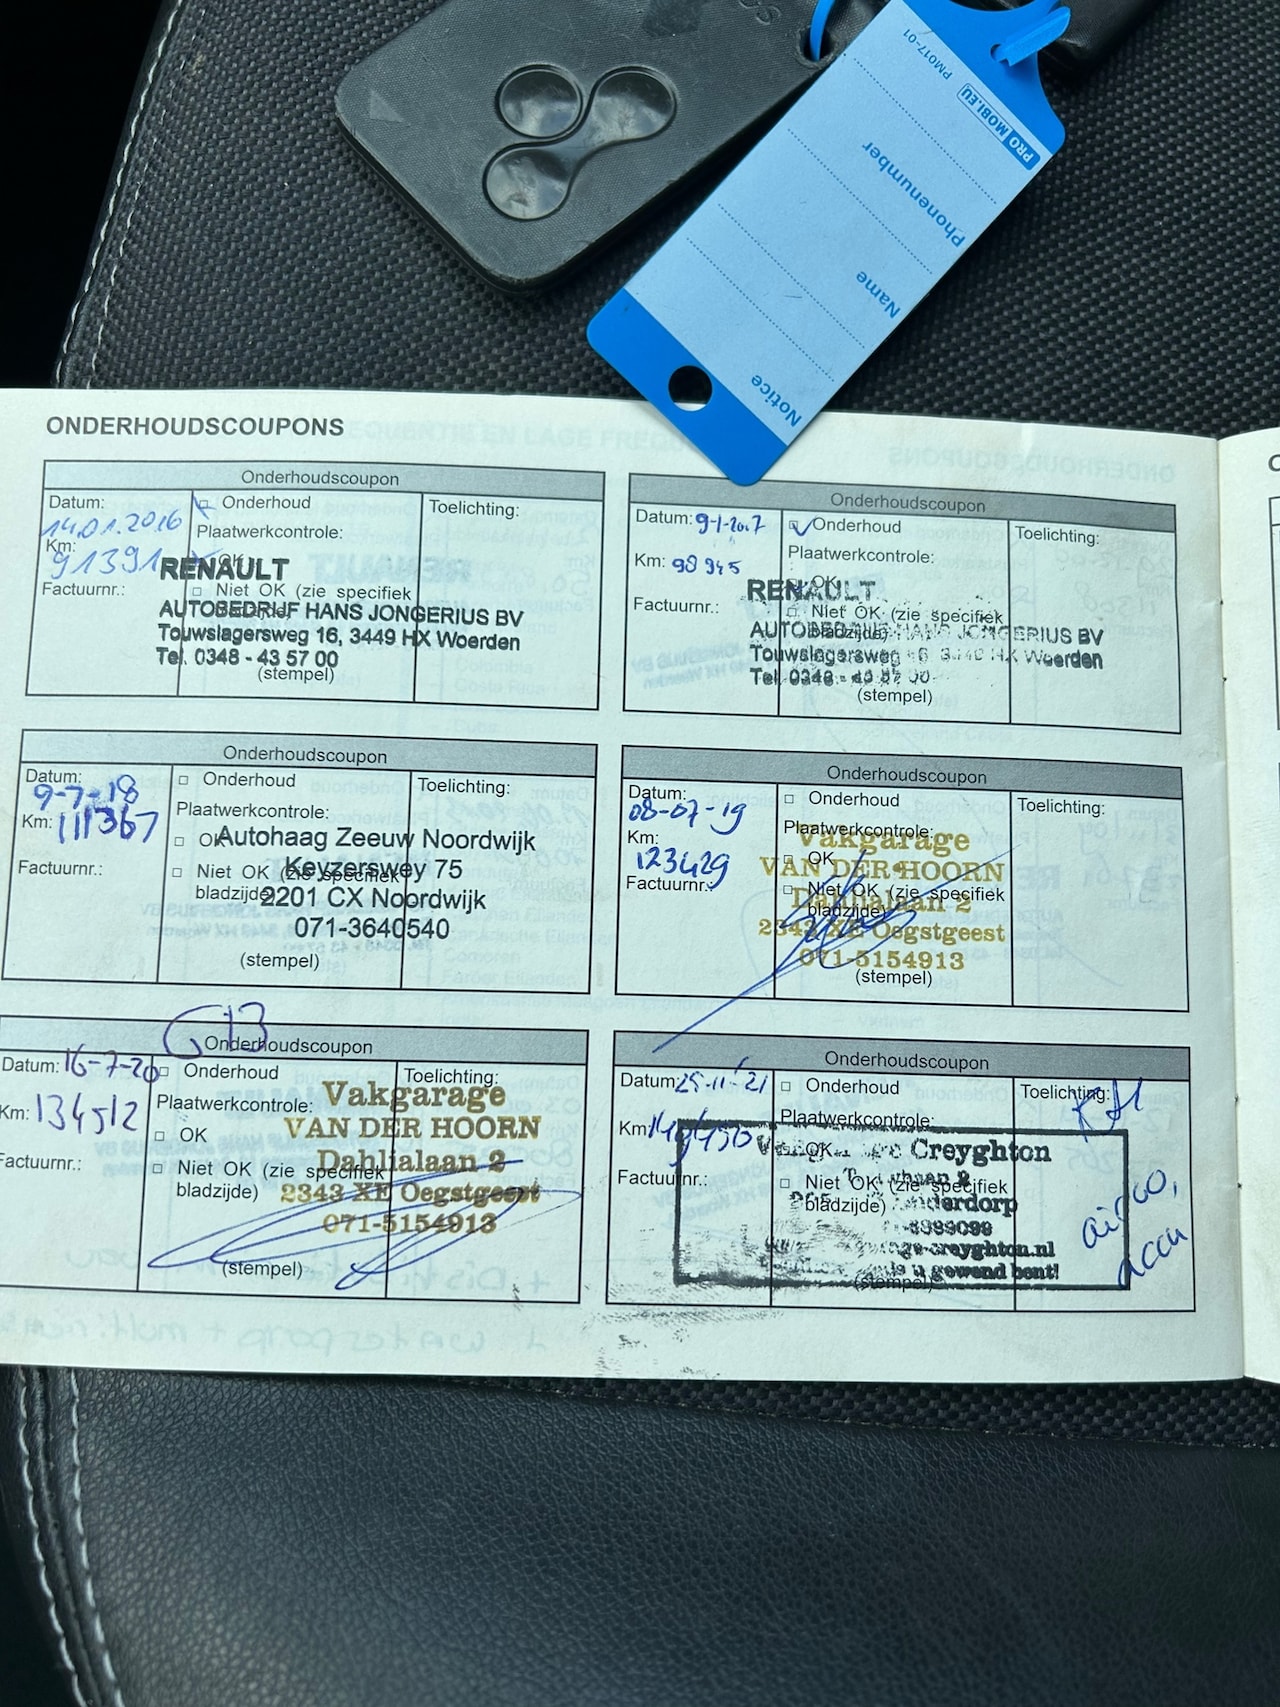 PM017-01
PRO MOBI.EU
Phonenumber
Name
Notice
ONDERHOUDSCOUPONS
Onderhoudscoupon
Datum: 14.01.2016
Onderhoud
Toelichting:
Km: 91391
Plaatwerkcontrole:
OK
Factuurnr.:
Niet OK (zie specifiek
RENAULT
AUTOBEDRIJF HANS JONGERIUS BV
Touwslagersweg 16, 3449 HX Woerden
Tel. 0348 - 43 57 00
(stempel)
Onderhoudscoupon
Datum: 9-1-2017
Onderhoud
Toelichting:
Km: 98945
Plaatwerkcontrole:
OK
Factuurnr.:
Niet OK (zie specifiek
bladzijde)
RENAULT
AUTOBEDRIJF HANS JONGERIUS BV
Touwslagersweg 16 3449 HX Woerden
Tel. 0348 - 43 57 00
(stempel)
Onderhoudscoupon
Datum: 9-7-18
Onderhoud
Toelichting:
Km: 111367
Plaatwerkcontrole:
OK
Factuurnr.:
Niet OK (zie specifiek
bladzijde)
Autohaag Zeeuw Noordwijk
Keyzerswey 75
2201 CX Noordwijk
071-3640540
(stempel)
Onderhoudscoupon
Datum: 08-07-19
Onderhoud
Toelichting:
Km: 123429
Plaatwerkcontrole:
OK
Factuurnr.:
Niet OK (zie specifiek
bladzijde)
Vakgarage
VAN DER HOORN
Dahlialaan 2
2343 XE Oegstgeest
071-5154913
(stempel)
Onderhoudscoupon
Datum: 16-7-20
Onderhoud
Toelichting:
Km: 134512
Plaatwerkcontrole:
OK
Factuurnr.:
Niet OK (zie specifiek
bladzijde)
Vakgarage
VAN DER HOORN
Dahlialaan 2
2343 XE Oegstgeest
071-5154913
(stempel)
Onderhoudscoupon
Datum: 25-11-'21
Onderhoud
Toelichting:
Km:
Plaatwerkcontrole:
OK
Factuurnr.:
Niet OK (zie specifiek
bladzijde)
Creyghton
derdorp
creyghton.nl
u gewend bent!
(stempel)
airco,
accu